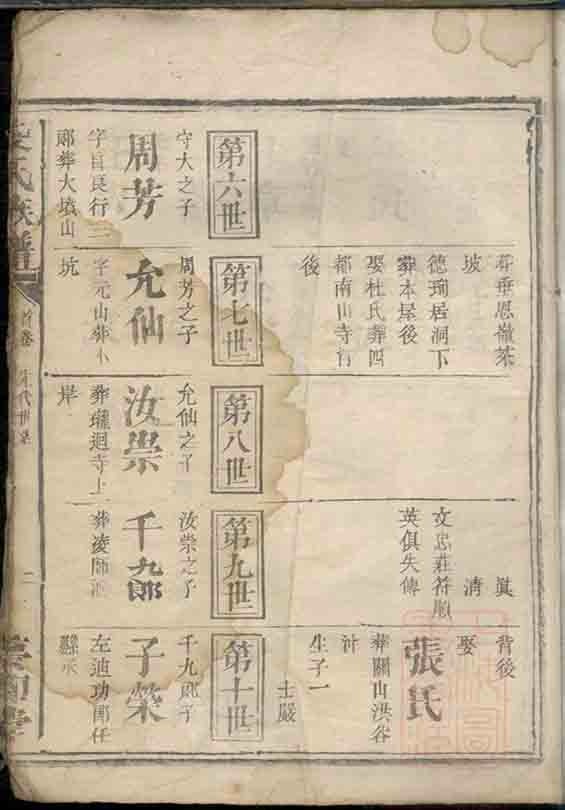 葬垂恩嶺茶
坡
德珣居洞下
葬本屋後
娶杜氏葬四
都南山寺
後
眞
清
文忠莊符順
英俱失傳
背後
娶
張氏
葬關山洪谷
生子一
士嚴
第六世
守大之子
周芳
字自良行二
郎葬大墳山
第七世
周芳之子
允仙
字元山葬小
坑
第八世
允仙之子
汝崇
葬瓏迴寺上
岸
第九世
汝崇之子
千九郎
葬凌師
第十世
千九郎子
子榮
左迪功郎任
縣丞
氏族譜
首卷
宋代世系
二